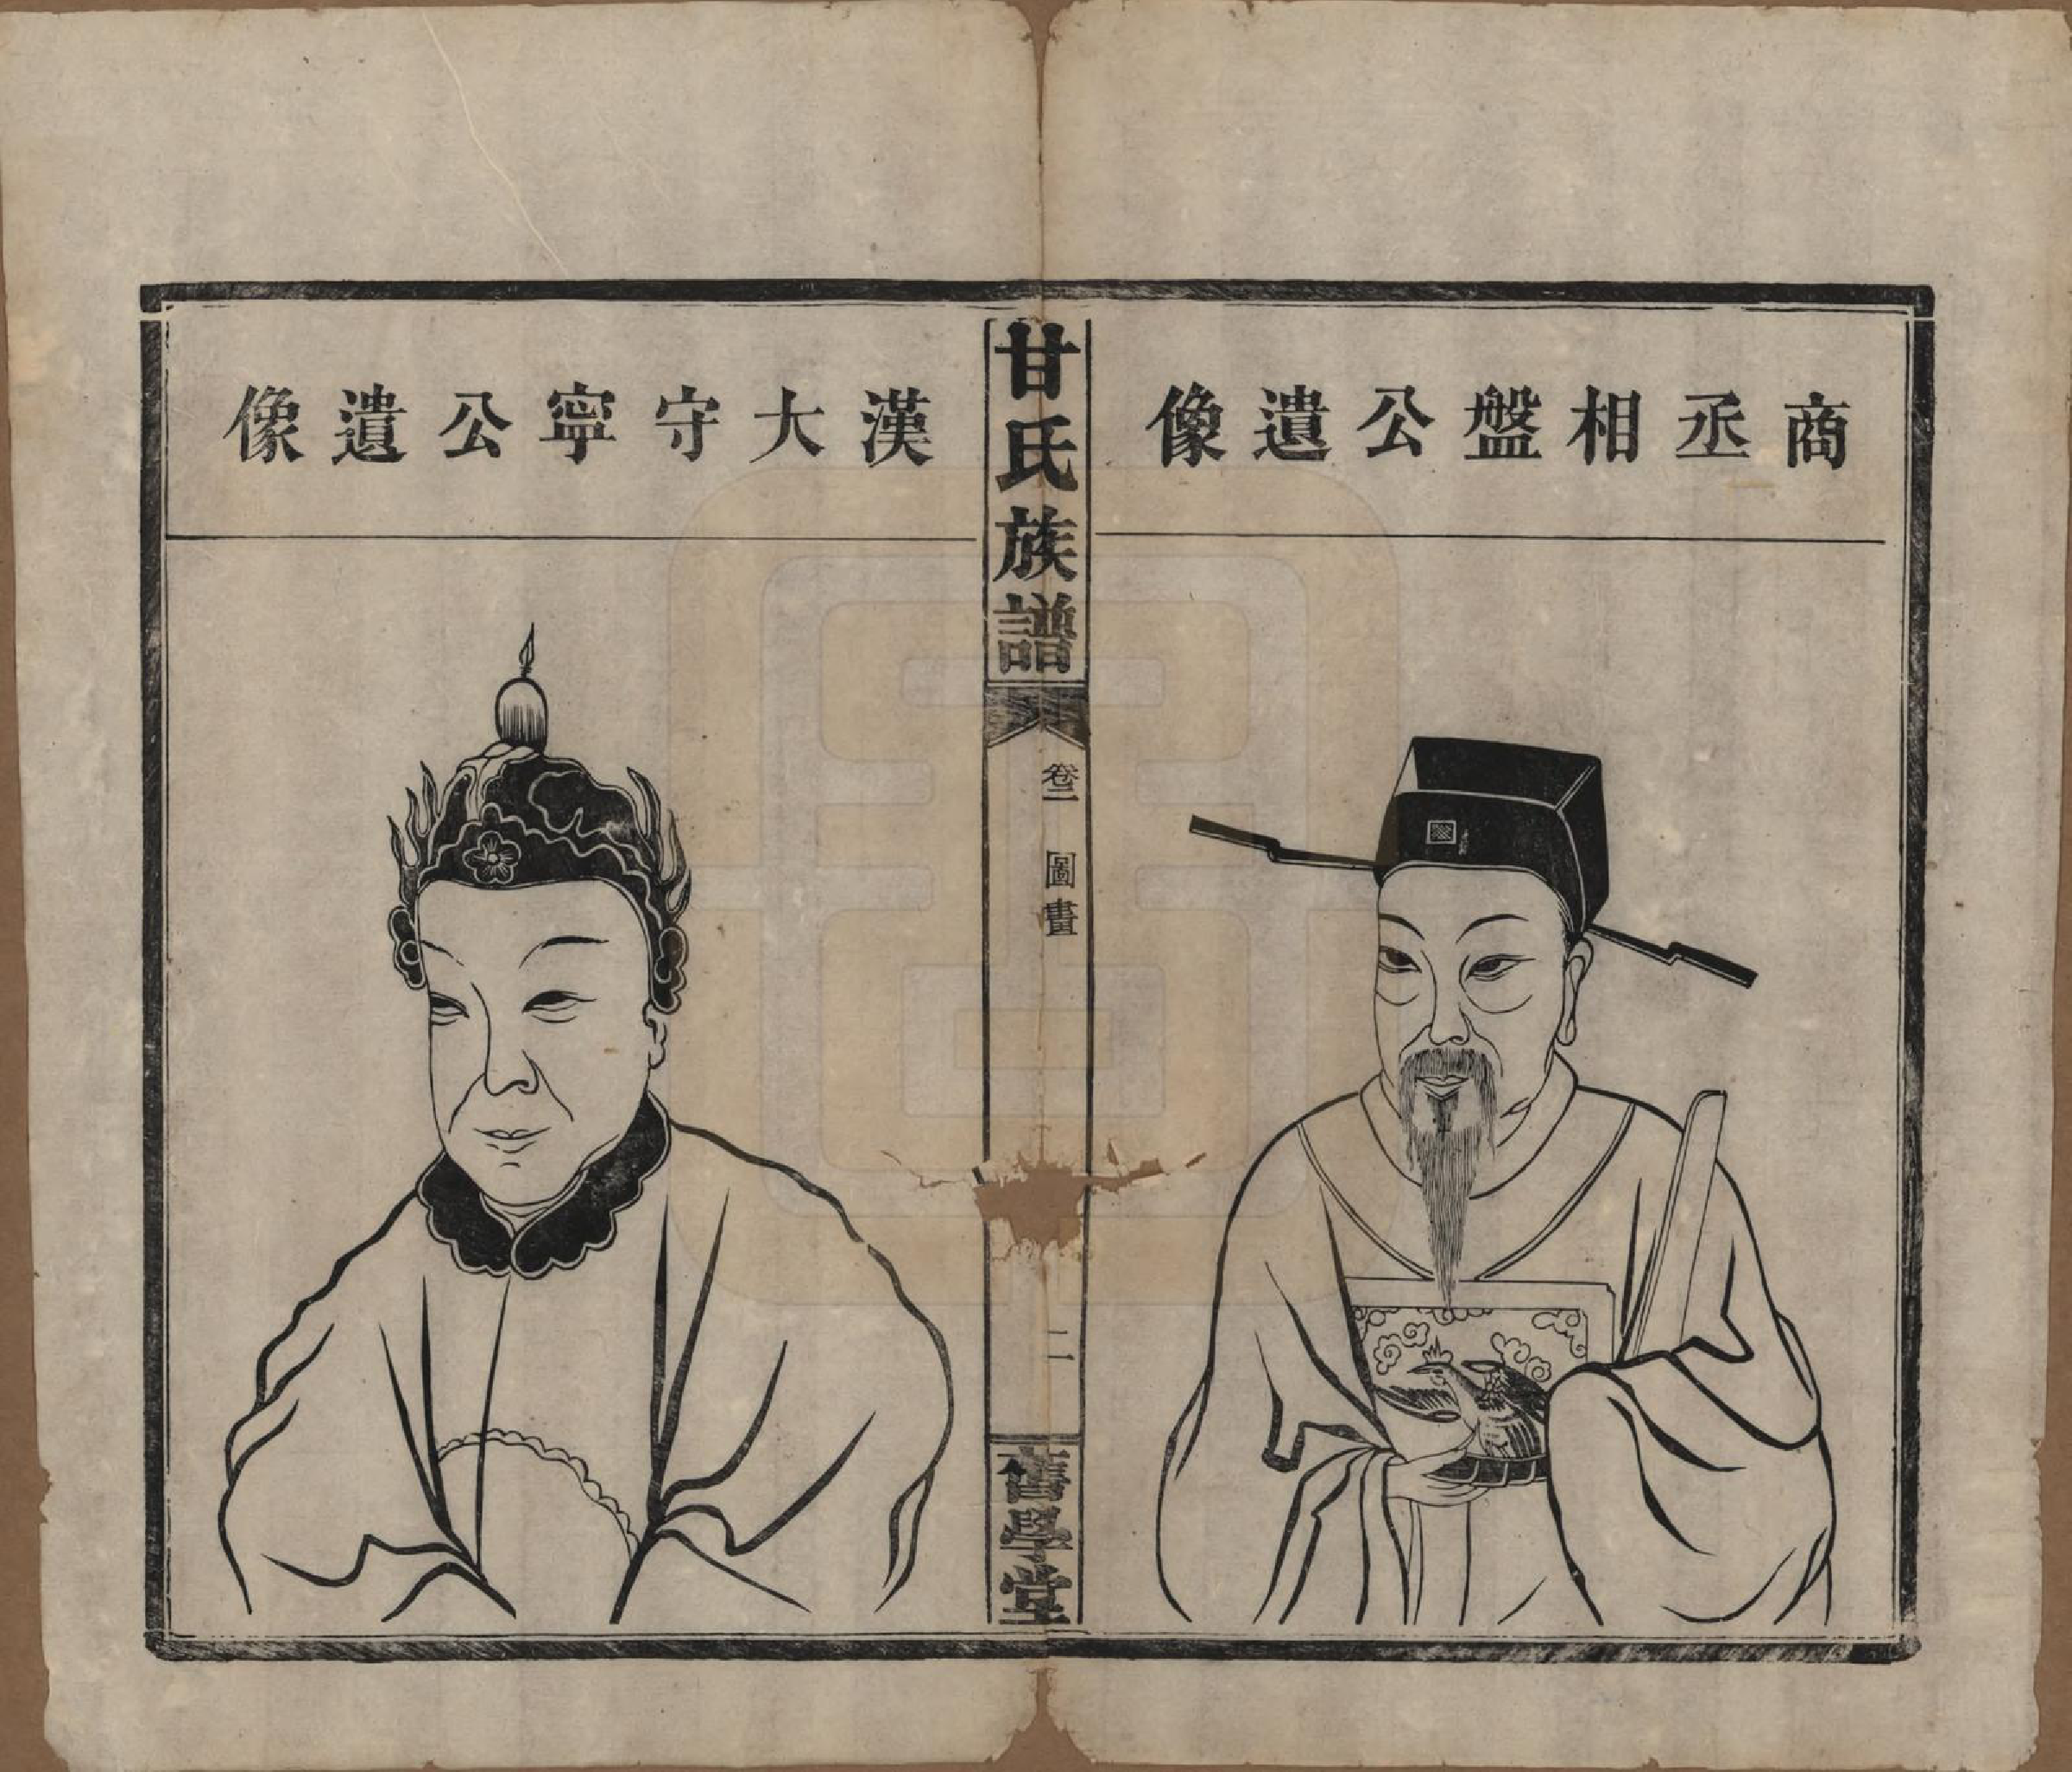 商丞相盤公遺像
甘氏族譜
卷二
圖畫
二
舊學堂
漢大守寧公遺像